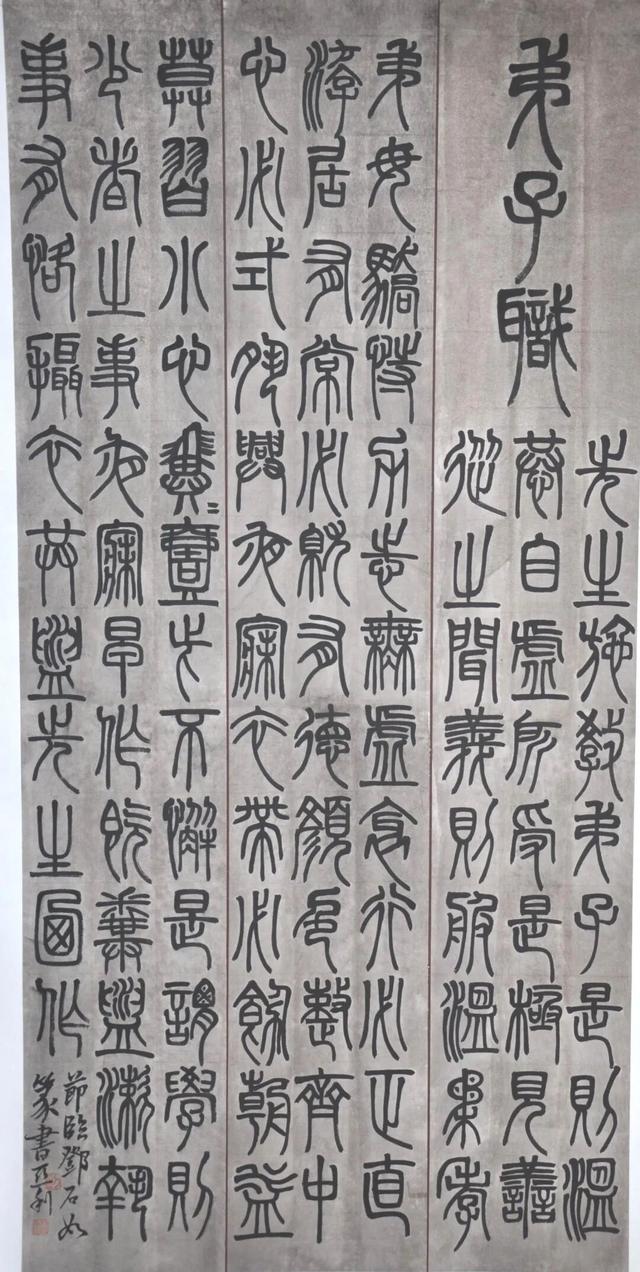 弟子職
先生施教弟子是則溫
恭自虛所受是極見善
從之聞義則服溫柔孝
弟毋驕恃力志無虛衺行必正直
游居有常必就有德顏色整齊中
心必式夙興夜寐衣帶必飭朝益
莫習小心翼〻壹此不懈是謂學則
少者之事夜寐早作既糞盥漱執
事有恪攝衣共盥先生迺作
節臨鄧石如
篆書亞利